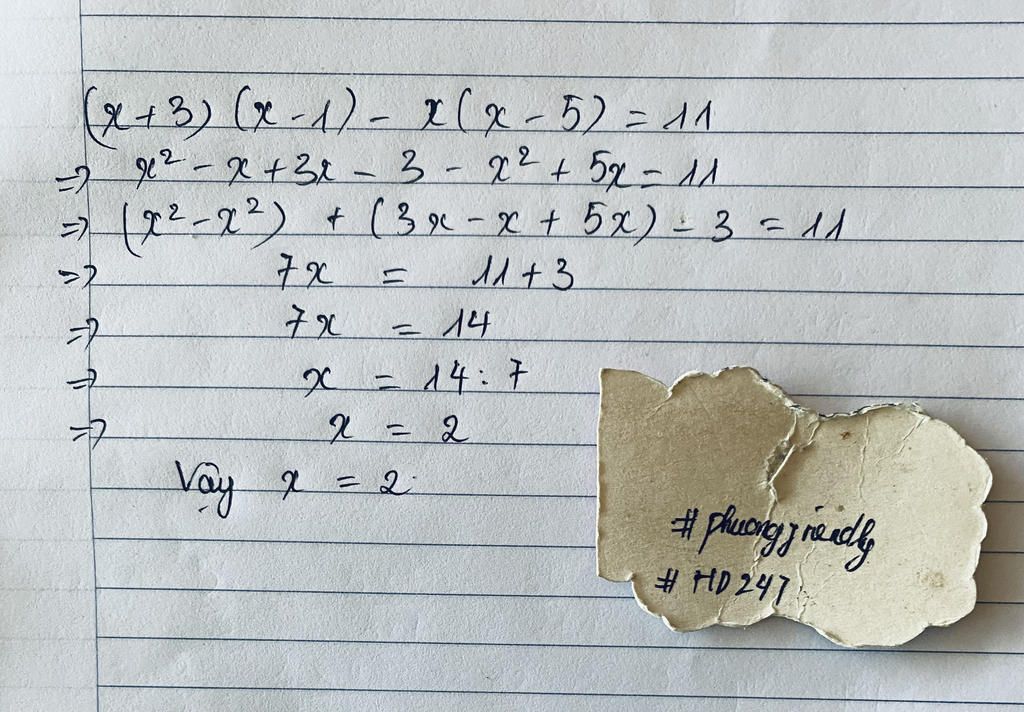 (x + 3) (x - 1) - x (x - 5) = 11
=> x² - x + 3x - 3 - x² + 5x = 11
=> (x² - x²) + (3x - x + 5x) - 3 = 11
=> 7x = 11 + 3
=> 7x = 14
=> x = 14 : 7
=> x = 2
Vậy x = 2.
# phuongfriendly
# HD247